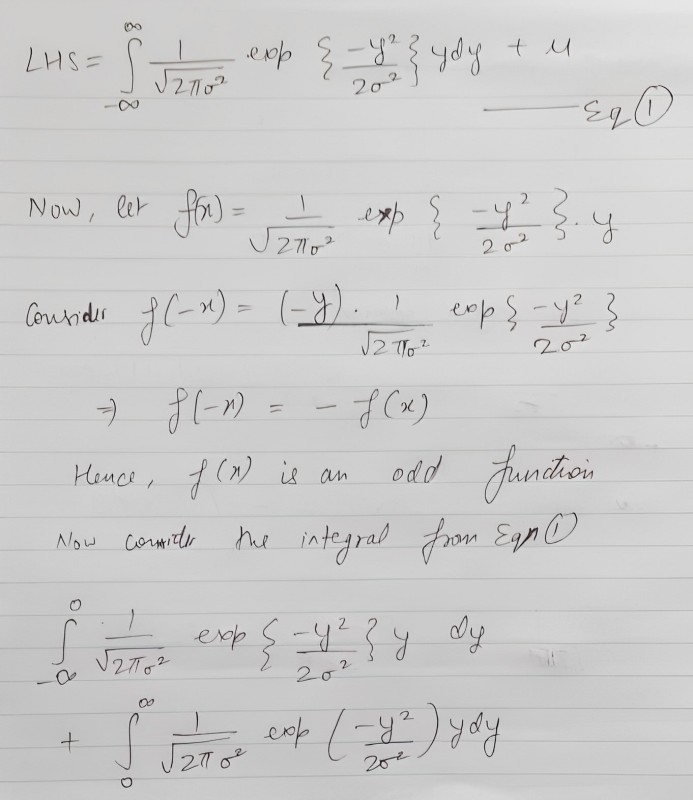 LHS = ∫_{-∞}^{∞} 1/√(2πσ²) exp { -y²/2σ² } y dy + μ
—— Eq ①
Now, let f(x) = 1/√(2πσ²) exp { -y²/2σ² } . y
Consider f(-x) = (-y) . 1/√(2πσ²) exp { -y²/2σ² }
⇒ f(-x) = - f(x)
Hence, f(x) is an odd function
Now consider the integral from Eqn ①
∫_{-∞}^{0} 1/√(2πσ²) exp { -y²/2σ² } y dy
+ ∫_{0}^{∞} 1/√(2πσ²) exp ( -y²/2σ² ) y dy